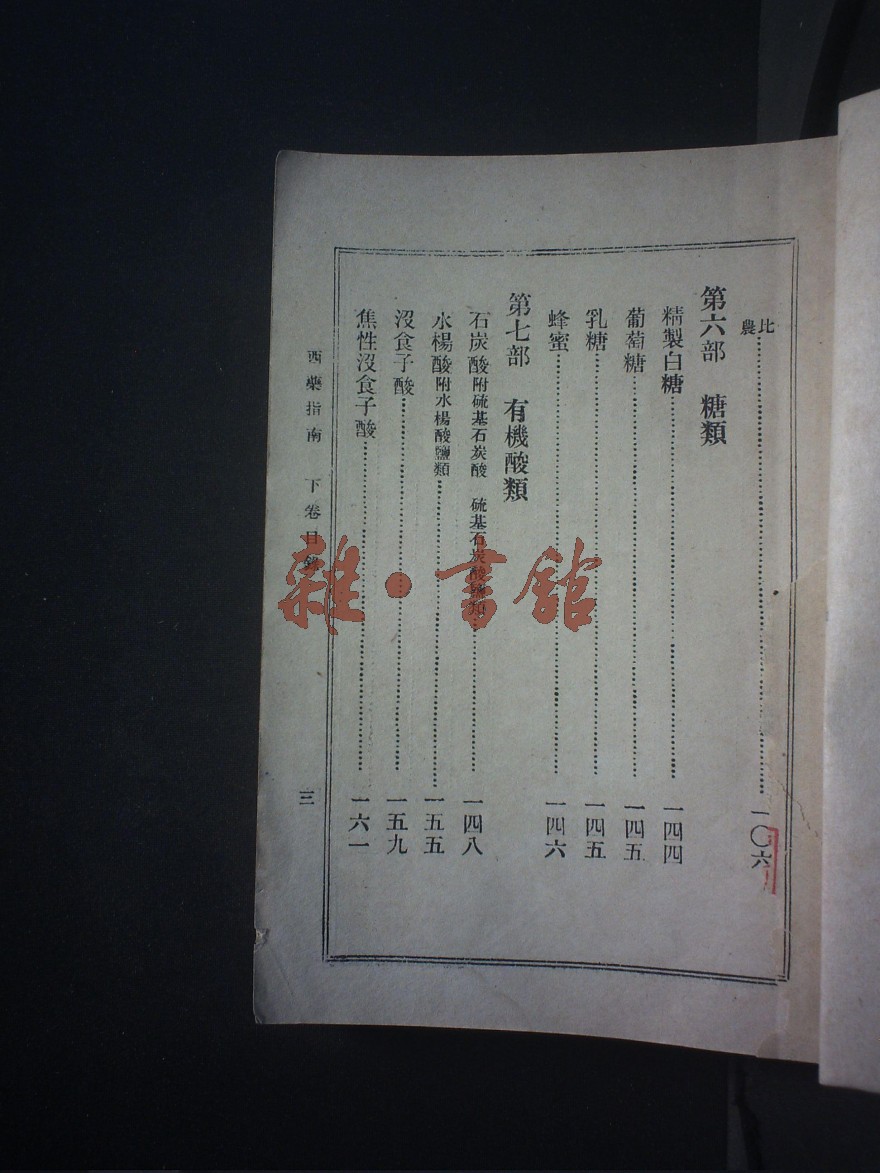 比農……一〇六
第六部　糖類
精製白糖……一四四
葡萄糖……一四五
乳糖……一四五
蜂蜜……一四六
第七部　有機酸類
石炭酸附硫基石炭酸　硫基石炭酸鹽類……一四八
水楊酸附水楊酸鹽類……一五五
沒食子酸……一五九
焦性沒食子酸……一六一
西藥指南　下卷目錄　三
雜·書館